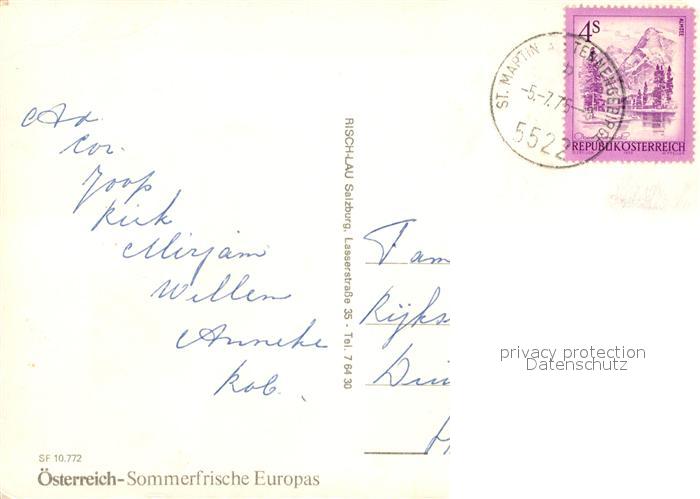 Ad
Cor.
Joop
Riek
Mirjam
Willem
Anneke
Rob.
RISCH-LAU Salzburg, Lasserstraße 35 - Tel. 7 64 30
SF 10.772
Österreich-Sommerfrische Europas
4S
ALMSEE
REPUBLIK ÖSTERREICH
ST. MARTIN A. TENNENGEBIRGE
-5.-7.75
5522
Fam
Rijks
privacy protection
Datenschutz